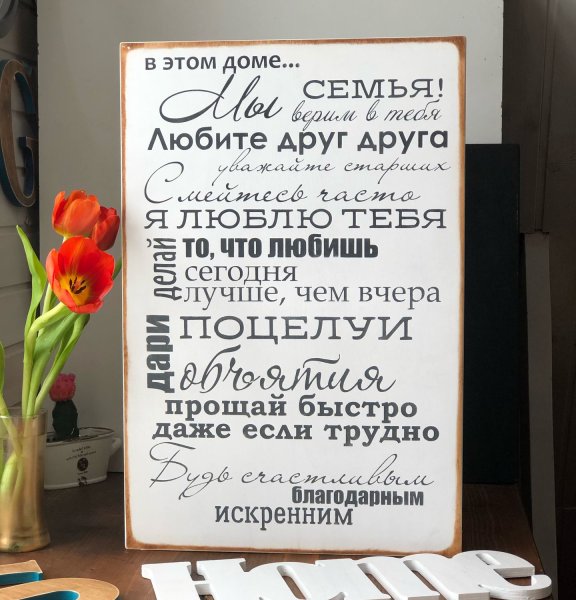 в этом доме...
Мы СЕМЬЯ!
верим в тебя
Любите друг друга
уважайте старших
Смейтесь часто
Я ЛЮБЛЮ ТЕБЯ
делай то, что любишь
сегодня
лучше, чем вчера
дари ПОЦЕЛУИ
объятия
прощай быстро
даже если трудно
Будь счастливым
благодарным
искренним
Home